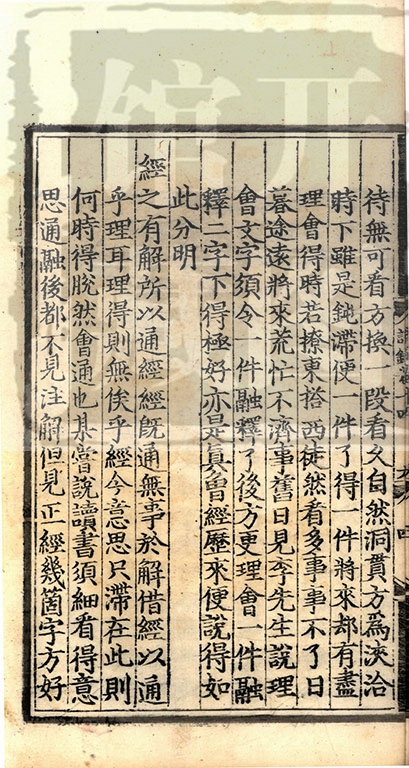 待無可看方換一段看久自然洞貫方爲浹洽
時下雖是鈍滯便一件了得一件將來却有盡
理會得時若撩東搭西徒然看多事事不了日
暮途遠將來荒忙不濟事舊日見李先生說理
會文字須令一件融釋了後方更理會一件融
釋二字下得極好亦是真曾經歷來便說得如
此分明
經之有解所以通經經旣通無事於解借經以通
乎理耳理得則無俟乎經今意思只滯在此則
何時得脫然會通也某嘗說讀書須細看得意
思通融後都不見注解但見正經幾箇字方好